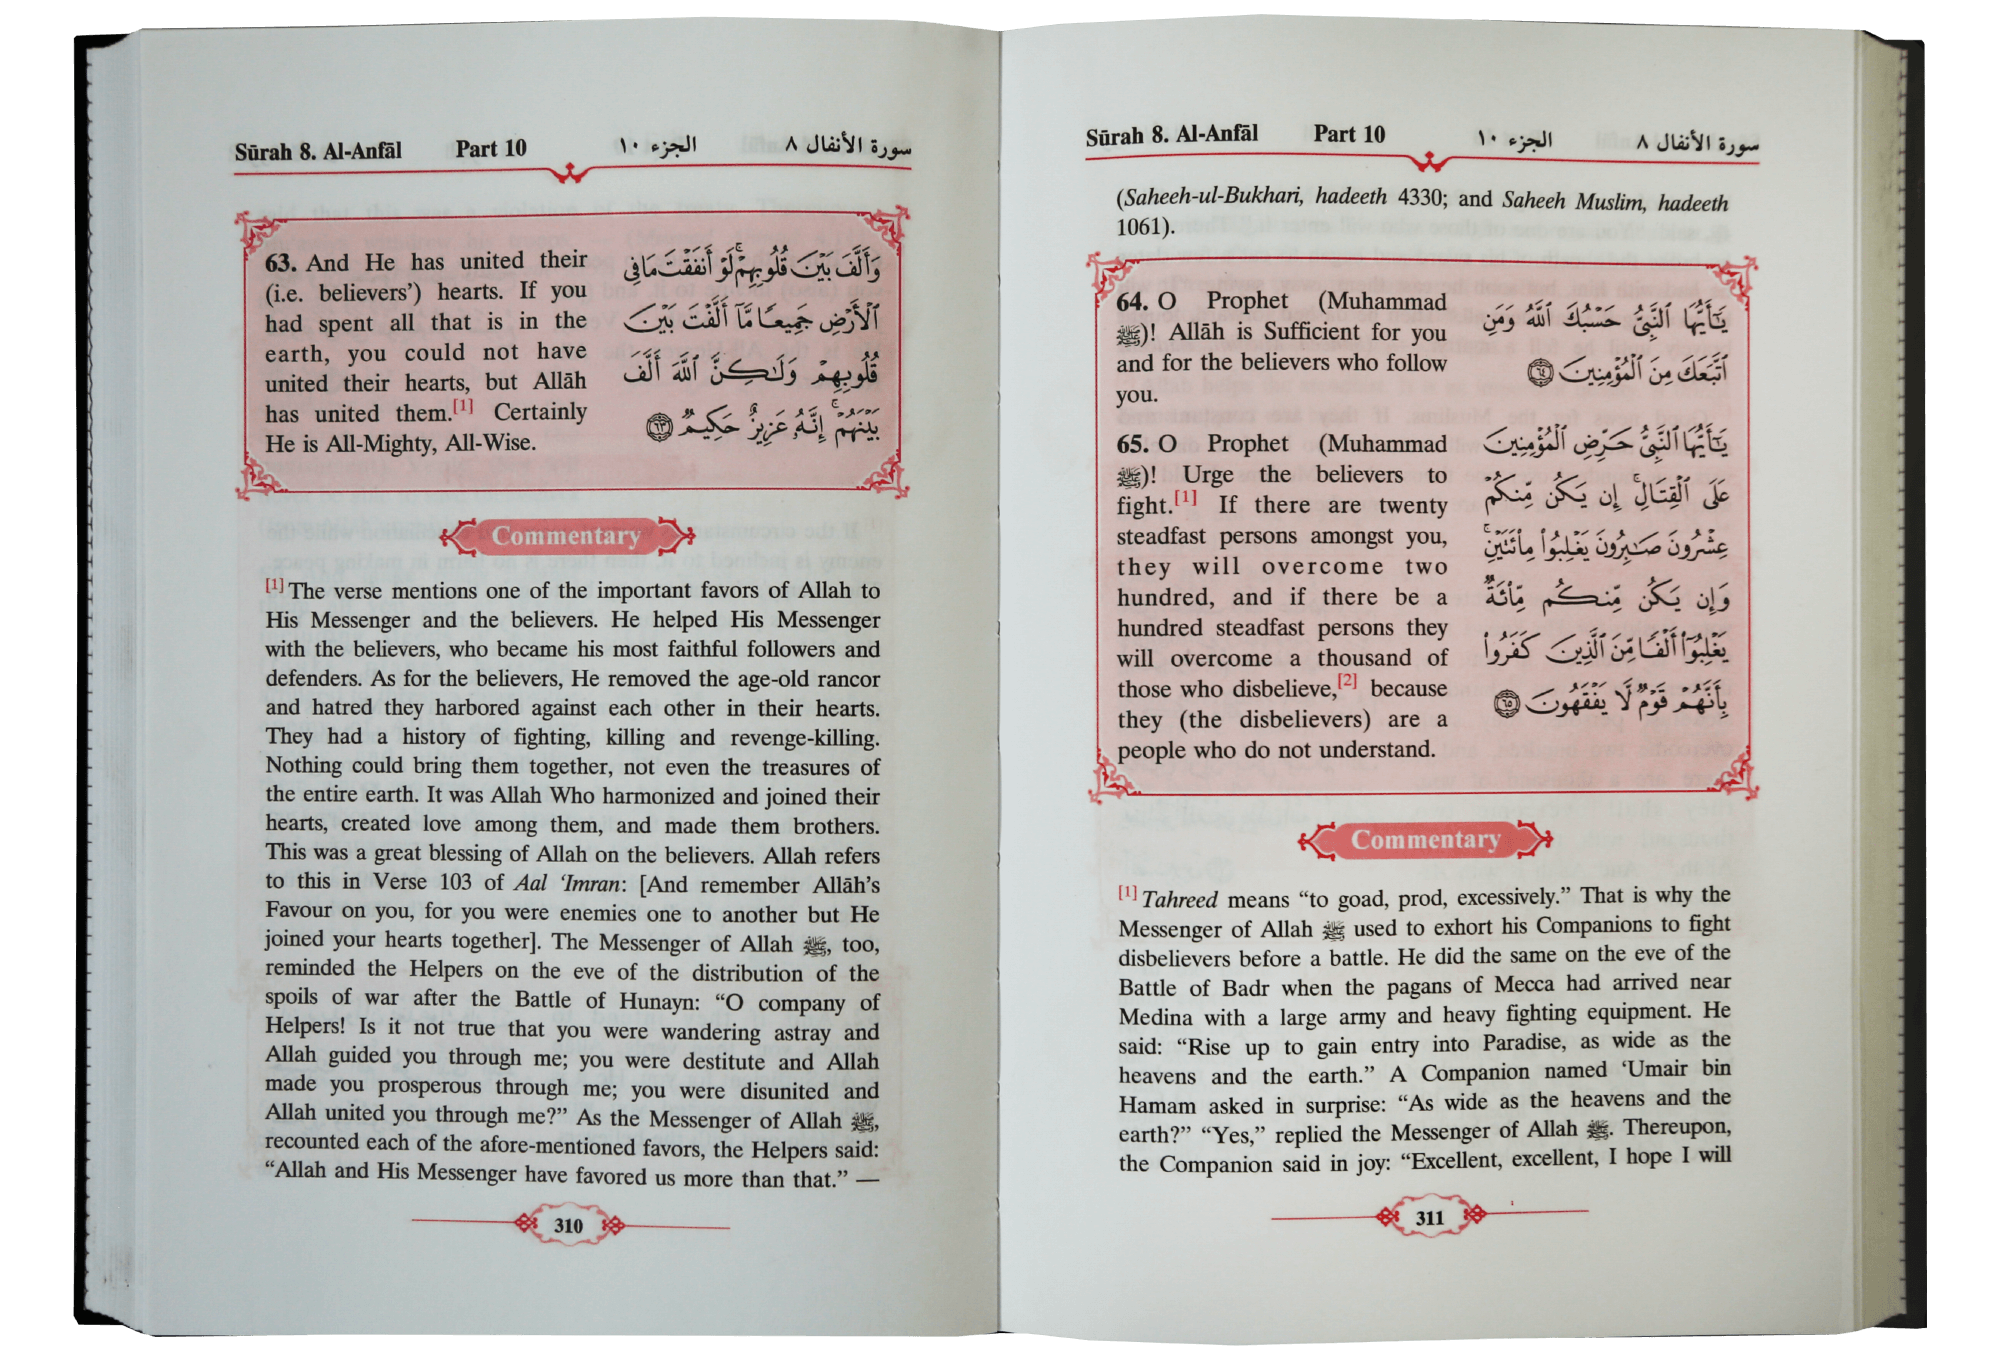 Sūrah 8. Al-Anfāl Part 10 الجزء ١٠ سورة الأنفال ٨
63. And He has united their
(i.e. believers’) hearts. If you
had spent all that is in the
earth, you could not have
united their hearts, but Allāh
has united them.[1] Certainly
He is All-Mighty, All-Wise.
وَأَلَّفَ بَيْنَ قُلُوبِهِمْ ۚ لَوْ أَنفَقْتَ مَا فِي
ٱلْأَرْضِ جَمِيعًا مَّآ أَلَّفْتَ بَيْنَ
قُلُوبِهِمْ وَلَٰكِنَّ ٱللَّهَ أَلَّفَ
بَيْنَهُمْ ۚ إِنَّهُۥ عَزِيزٌ حَكِيمٌ ٦٣
Commentary
[1] The verse mentions one of the important favors of Allah to
His Messenger and the believers. He helped His Messenger
with the believers, who became his most faithful followers and
defenders. As for the believers, He removed the age-old rancor
and hatred they harbored against each other in their hearts.
They had a history of fighting, killing and revenge-killing.
Nothing could bring them together, not even the treasures of
the entire earth. It was Allah Who harmonized and joined their
hearts, created love among them, and made them brothers.
This was a great blessing of Allah on the believers. Allah refers
to this in Verse 103 of Aal ‘Imran: [And remember Allāh’s
Favour on you, for you were enemies one to another but He
joined your hearts together]. The Messenger of Allah ﷺ, too,
reminded the Helpers on the eve of the distribution of the
spoils of war after the Battle of Hunayn: “O company of
Helpers! Is it not true that you were wandering astray and
Allah guided you through me; you were destitute and Allah
made you prosperous through me; you were disunited and
Allah united you through me?” As the Messenger of Allah ﷺ,
recounted each of the afore-mentioned favors, the Helpers said:
“Allah and His Messenger have favored us more than that.” —
310
Sūrah 8. Al-Anfāl Part 10 الجزء ١٠ سورة الأنفال ٨
(Saheeh-ul-Bukhari, hadeeth 4330; and Saheeh Muslim, hadeeth
1061).
64. O Prophet (Muhammad
ﷺ)! Allāh is Sufficient for you
and for the believers who follow
you.
يَٰٓأَيُّهَا ٱلنَّبِيُّ حَسْبُكَ ٱللَّهُ وَمَنِ
ٱتَّبَعَكَ مِنَ ٱلْمُؤْمِنِينَ ٦٤
65. O Prophet (Muhammad
ﷺ)! Urge the believers to
fight.[1] If there are twenty
steadfast persons amongst you,
they will overcome two
hundred, and if there be a
hundred steadfast persons they
will overcome a thousand of
those who disbelieve,[2] because
they (the disbelievers) are a
people who do not understand.
يَٰٓأَيُّهَا ٱلنَّبِيُّ حَرِّضِ ٱلْمُؤْمِنِينَ
عَلَى ٱلْقِتَالِ ۚ إِن يَكُن مِّنكُمْ
عِشْرُونَ صَٰبِرُونَ يَغْلِبُوا۟ مِا۟ئَتَيْنِ ۚ
وَإِن يَكُن مِّنكُم مِّا۟ئَةٌ
يَغْلِبُوٓا۟ أَلْفًا مِّنَ ٱلَّذِينَ كَفَرُوا۟
بِأَنَّهُمْ قَوْمٌ لَّا يَفْقَهُونَ ٦٥
Commentary
[1] Tahreed means “to goad, prod, excessively.” That is why the
Messenger of Allah ﷺ used to exhort his Companions to fight
disbelievers before a battle. He did the same on the eve of the
Battle of Badr when the pagans of Mecca had arrived near
Medina with a large army and heavy fighting equipment. He
said: “Rise up to gain entry into Paradise, as wide as the
heavens and the earth.” A Companion named ‘Umair bin
Hamam asked in surprise: “As wide as the heavens and the
earth?” “Yes,” replied the Messenger of Allah ﷺ. Thereupon,
the Companion said in joy: “Excellent, excellent, I hope I will
311